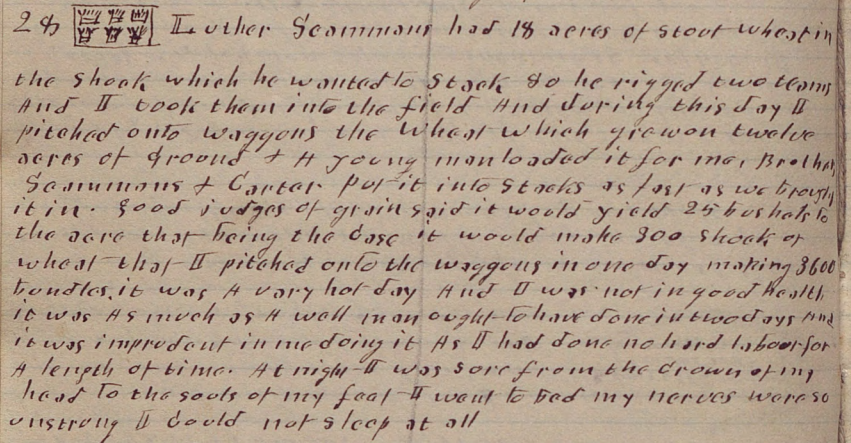 28 Luther Scammans had 18 acres of stout wheat in
the shock which he wanted to stack so he rigged two teams
And I took them into the field And during this day I
pitched onto waggons the wheat which grew on twelve
acres of ground & A young man loaded it for me, Brother
Scammans & Carter put it into stacks as fast as we brought
it in. good judges of grain said it would yield 25 bushels to
the acre that being the case it would make 300 shock of
wheat that I pitched onto the waggons in one day making 3600
bundles. it was A vary hot day And I was not in good health
it was As much as A well man ought to have done in two days And
it was imprudent in me doing it As I had done no hard labour for
A length of time. At night I was sore from the crown of my
head to the souls of my feet I went to bed my nerves were so
unstrong I could not sleep at all